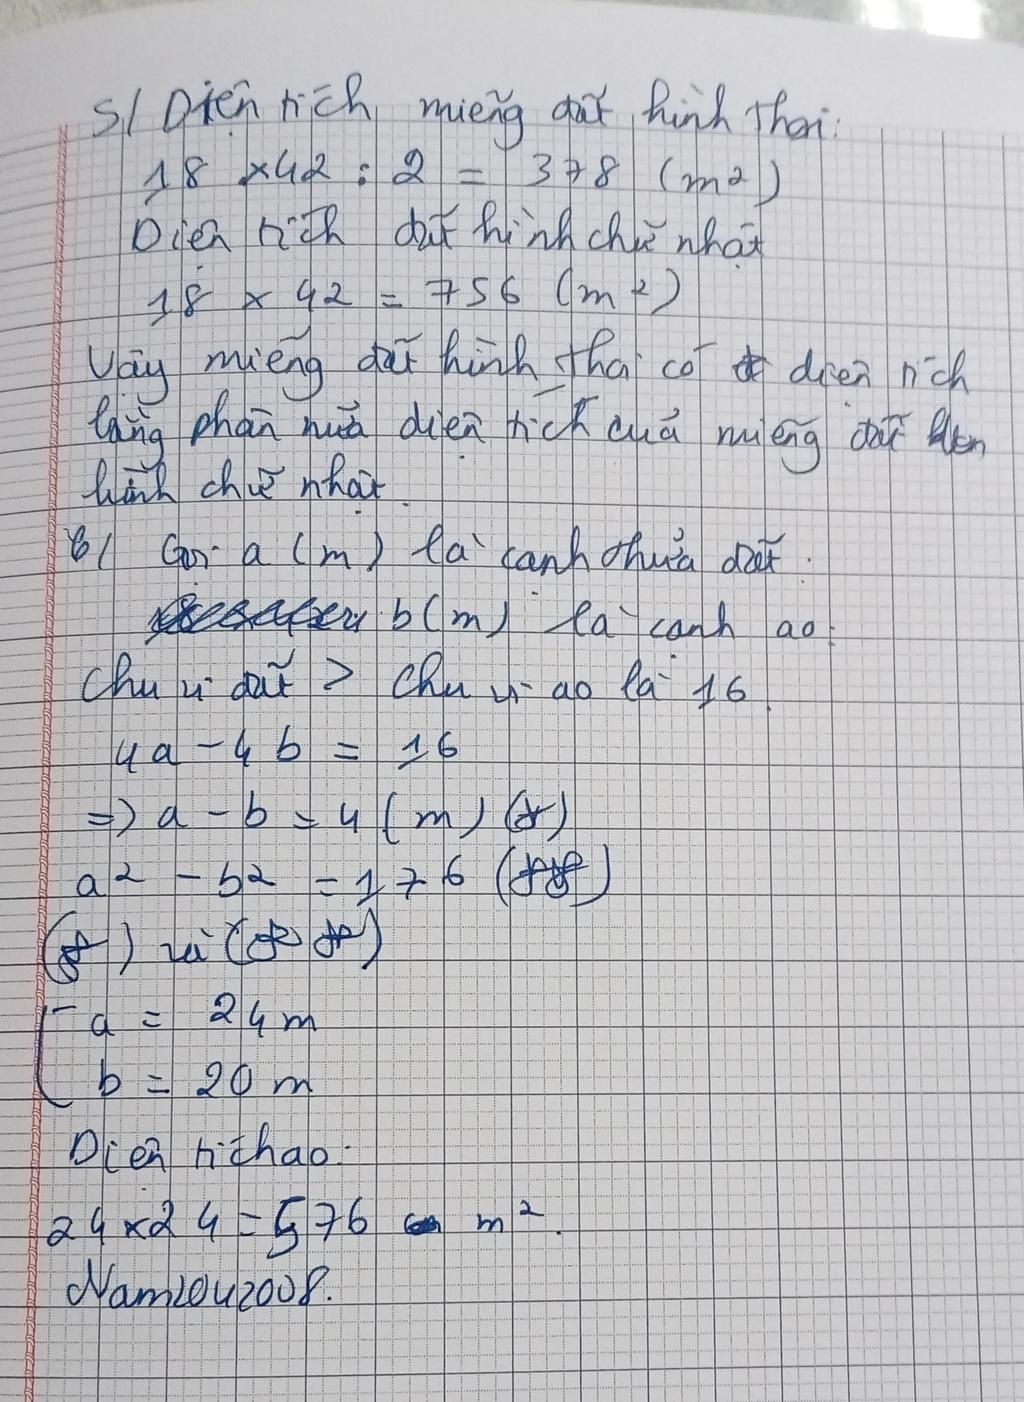 5/ Diện tích miếng đất hình thoi:
18 x 42 : 2 = 378 (m2)
Diện tích đất hình chữ nhật
18 x 42 = 756 (m2)
Vậy miếng đất hình thoi có diện tích
bằng phân nửa diện tích của miếng đất
hình chữ nhật.
6/ Gọi a (m) là cạnh thửa đất.
b (m) là cạnh ao.
Chu vi đất > Chu vi ao là 16
4a - 4b = 16
=> a - b = 4 (m) (*)
a2 - b2 = 176 (**)
(*) và (**)
a = 24 m
b = 20 m
Diện tích ao:
24 x 24 = 576 m2.
Nam2042008.